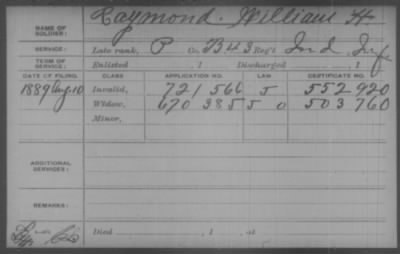 NAME OF SOLDIER: Raymond. William H
SERVICE: Late rank, P Co. B 43 Reg't Ind Inf
TERM OF SERVICE: Enlisted , 1 Discharged , 1
DATE OF FILING. CLASS APPLICATION NO. LAW CERTIFICATE NO.
1889 Aug 10 Invalid, 721 566 J 552 920
Widow, 670 385 J 0 503 760
Minor,
ADDITIONAL SERVICES:
REMARKS:
Died , 1 , at